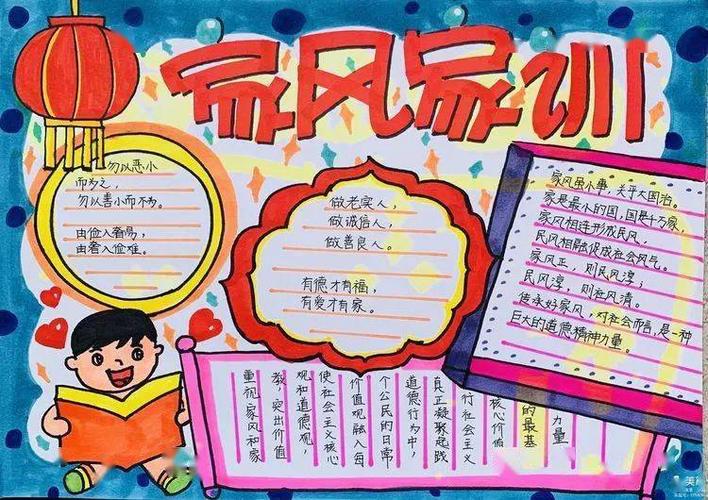 家风家训
勿以恶小
而为之，
勿以善小而不为。
由俭入奢易，
由奢入俭难。
做老实人，
做诚信人，
做善良人。
有德才有福，
有爱才有家。
家风虽小事，关乎大国治。
家是最小的国，国是千万家，
家风相连形成民风，
民风相融促成社会风气。
家风正，则民风淳；
民风淳，则社风清。
传承好家风，对社会而言，是一种
巨大的道德精神力量。
重视家风和家
教，突出价值
观和道德观，
使社会主义核心
价值观融入每
个公民的日常
道德行为中，
真正凝聚起践
行社会主义
核心价值
的最基
力量
美